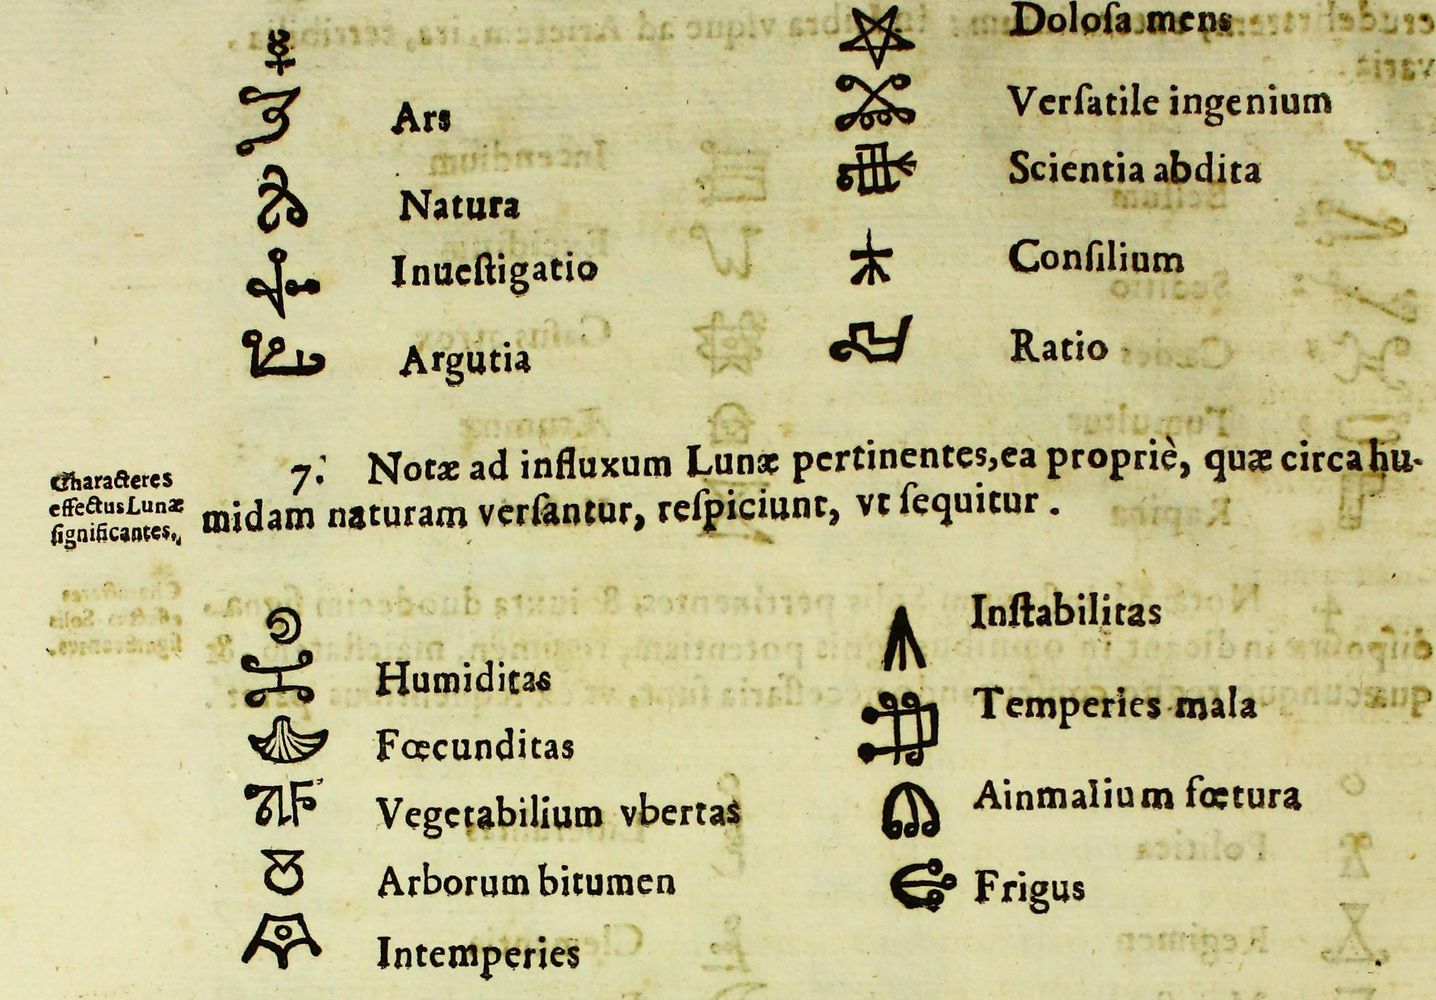 Doloſa mens
Ars
Verſatile ingenium
Natura
Scientia abdita
Inueſtigatio
Conſilium
Argutia
Ratio
Characteres
effectus Lunæ
ſignificantes.
7. Notæ ad influxum Lunæ pertinentes, ea propriè, quæ circa hu-
midam naturam verſantur, reſpiciunt, vt ſequitur.
Humiditas
Fœcunditas
Vegetabilium vbertas
Arborum bitumen
Intemperies
Inſtabilitas
Temperies mala
Ainmalium fœtura
Frigus